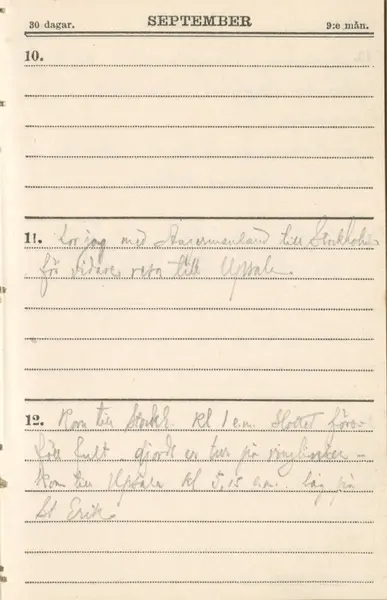 30 dagar. SEPTEMBER 9:e mån.
10.
11. For jag med Ångermanland till Stockholm
för vidare resa till Upsala
12. Kom till Stockh. kl 1 e.m. Slottet
gjorde en tur på ringbanan –
Kom till Upsala kl 5,15 e.m. låg på
St Erik